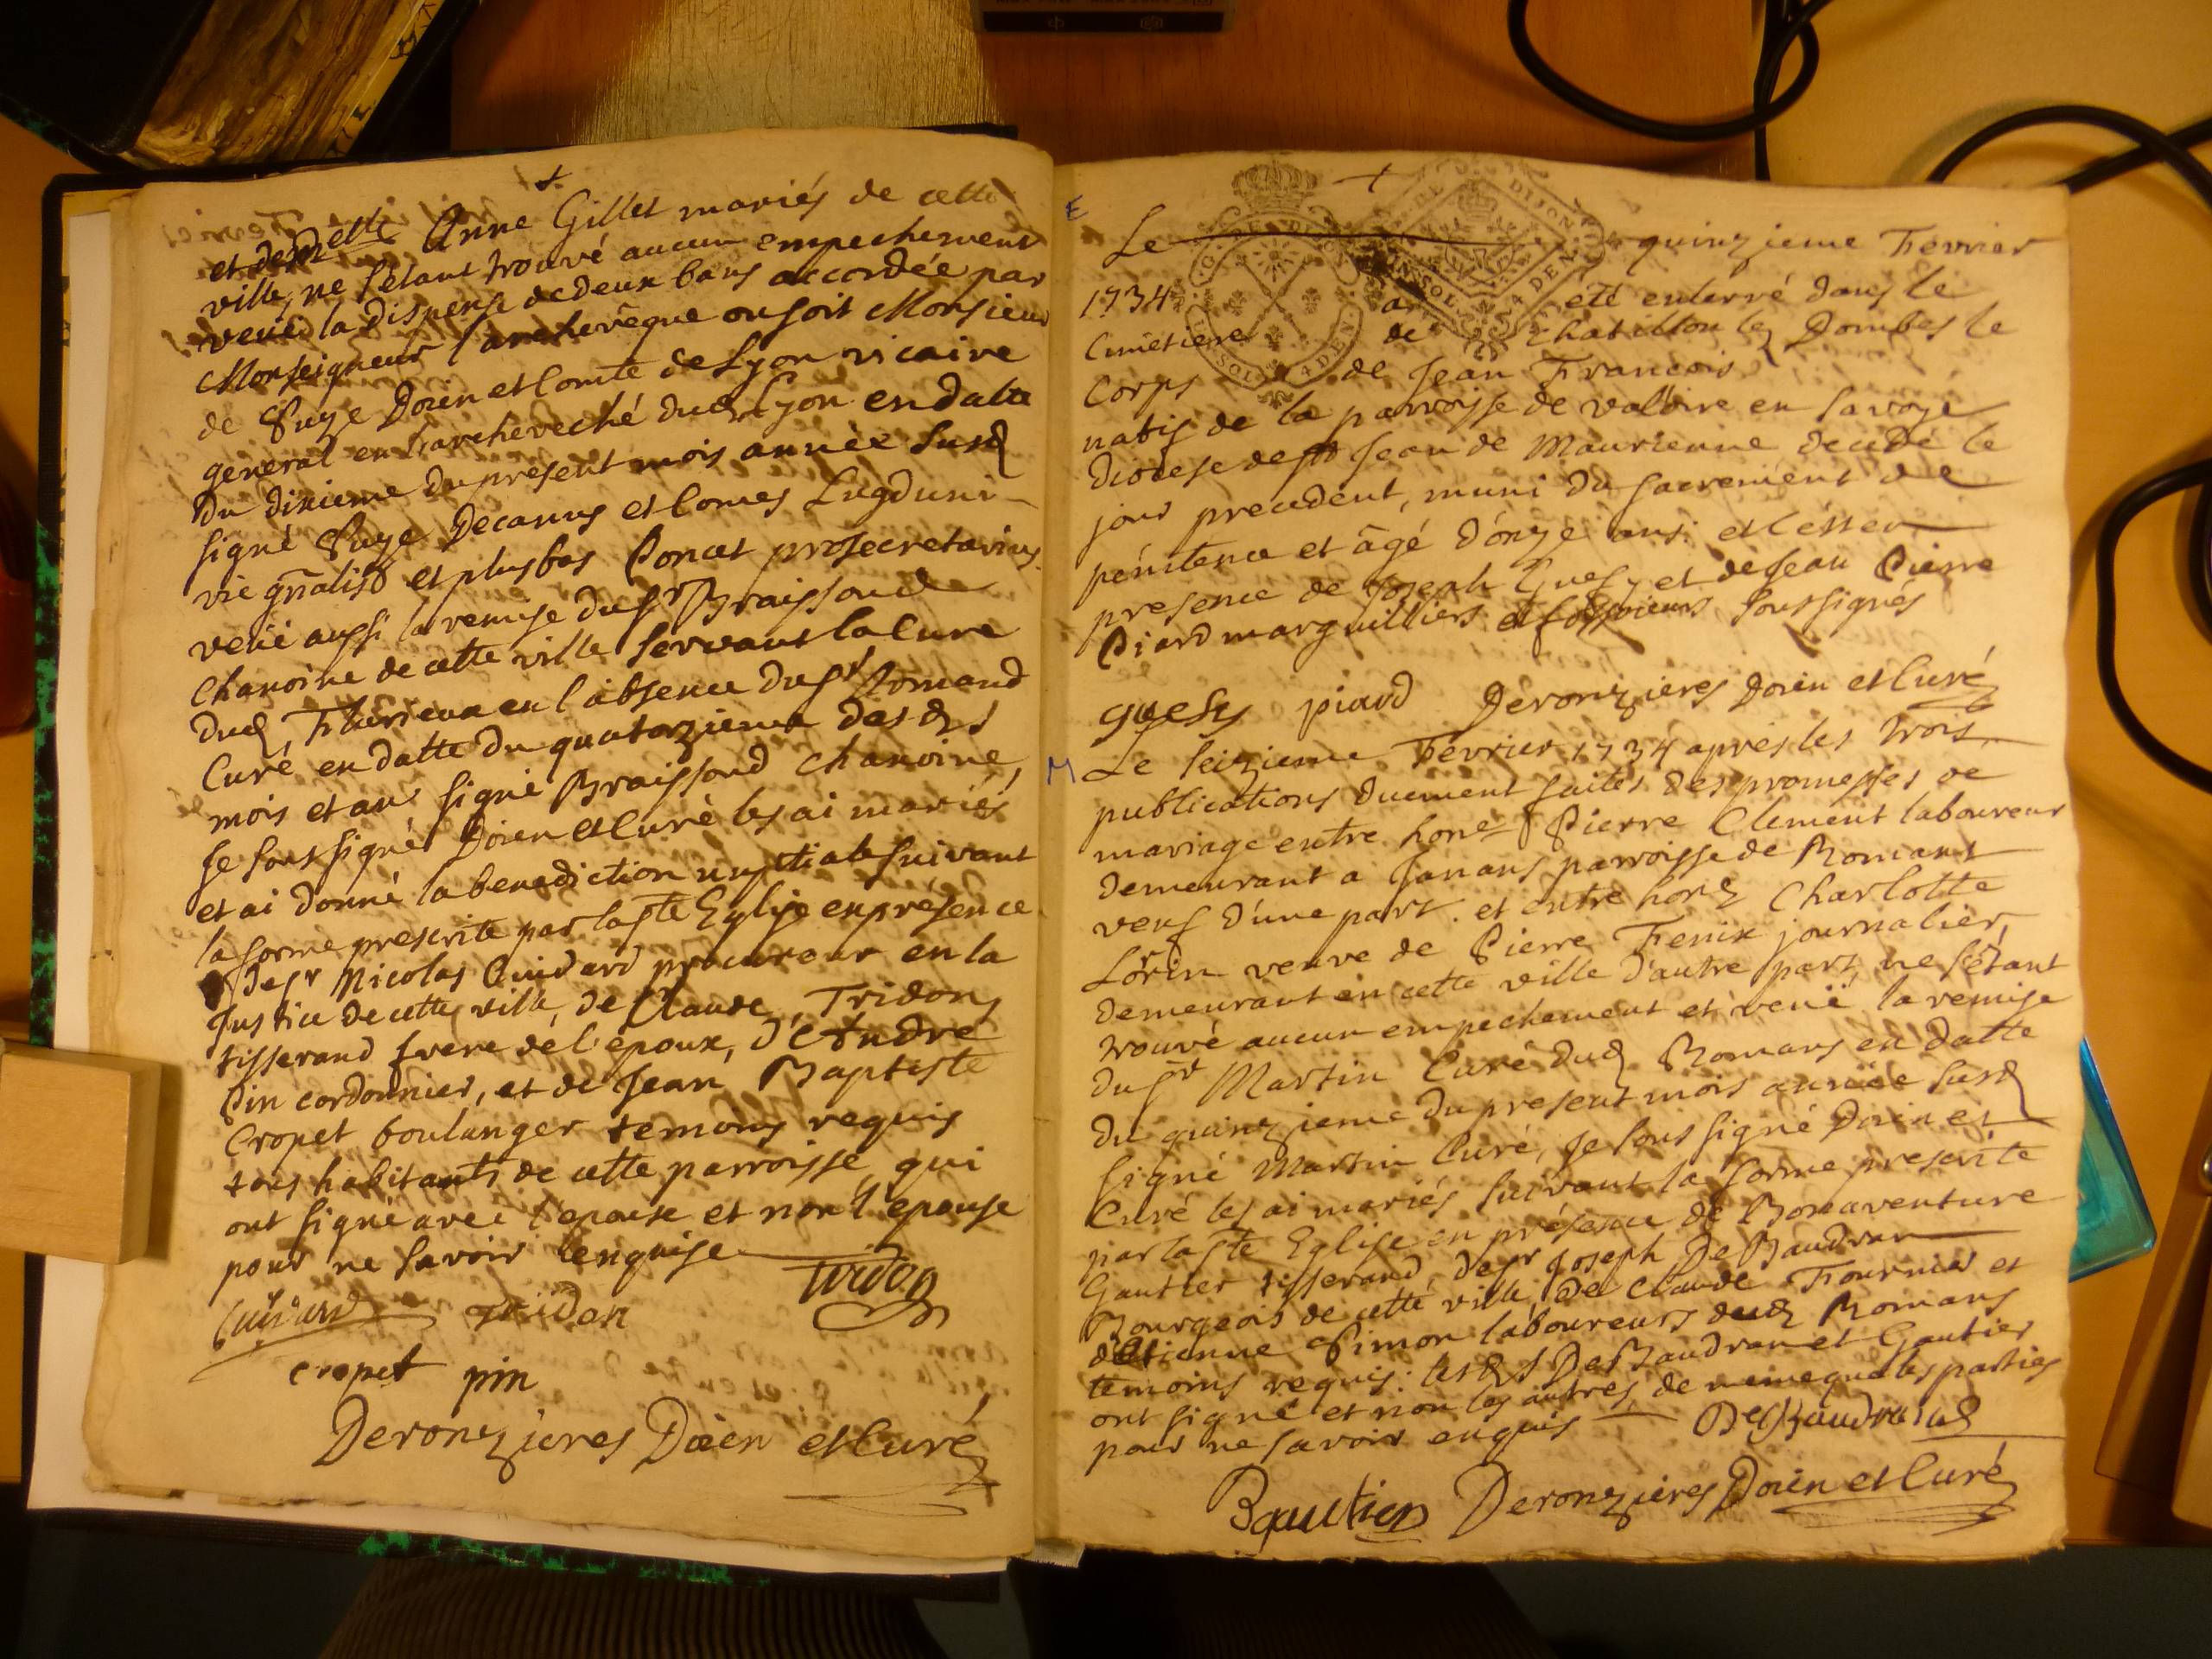 et dem^elle Anne Gillet mariés de cette
ville, ne s'étant trouvé aucun empechement
veüe la dispense de deux bans accordée par
Monseigneur l'archevêque ou soit Monsieur
de Doïen et Comte de Lyon vicaire
general en l'archeveché dud Lyon en datte
du dixieme du present mois année susd
signé Decanus et Comes Lugduni
vic gnalis et plus bas Poncet prosecretarius
veüe aussi la remise du sr Braissoud
chanoine de cette ville servant la Cure
dud Fleurieux en l'absence du sr Romand
Curé, en datte du quatorzieme des ds
mois et an signé Braissoud chanoine,
Je soussigné Doïen et Curé les ai mariés
et ai donné la benediction nuptiale suivant
la forme prescrite par la ste Eglise en présence
de sr Nicolas Cuidard procureur en la
Justice de cette ville, de Claude Tridon
tisserand frere de l'epoux, d'Andre
Pin cordonnier, et de Jean Baptiste
Cropet boulanger temoins requis
tous habitants de cette parroisse qui
ont signé avec l'epoux et non l'epouse
pour ne savoir l'enquise
Tridon
Tridon
cropet pin
Deronzieres Doïen et Curé
E
Le quinzieme Fevrier
1734 a été enterré dans le
Cimetiere de Chatillon lez Dombes le
Corps de Jean Francois
natif de la parroisse de valoire en savoye
diocese de st Jean de Maurienne decedé le
jour precedent, muni du sacrement de
penitence et âgé d'onze ans et c'est en
presence de Joseph Guesy et de Jean Pierre
Piard marguilliers et fossoieurs soussignés
guesy piard Deronzieres Doïen et Curé
M
Le seizieme Fevrier 1734 après les trois
publications duement faites des promesses de
mariage entre hon^e Pierre Clement laboureur
demeurant a Janans parroisse de Romans
veuf d'une part. et entre hon^e Charlotte
Lorin veuve de Pierre Fenix journalier,
demeurant en cette ville d'autre part, ne s'étant
trouvé aucun empechement et veüe la remise
du sr Martin Curé dud Romans en datte
du quinzieme du present mois année susd
signé Martin Curé, Je soussigné Doïen et
Curé les ai mariés suivant la forme prescrite
par la ste Eglise en présence de Bonaventure
Gautier tisserand, de sr Joseph De Baudran
Bourgeois de cette ville, de Claude Fournier et
d'Etienne Simon laboureurs dud Romans
temoins requis: lesd s De Baudran et Gautier
ont signé et non les autres, de meme que les parties
pour ne savoir enquis De Baudran
B gautier Deronzieres Doïen et Curé